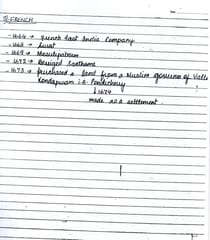 FRENCH
-1664 → French East India Company
-1668 → Surat
-1669 → Masulipatnam
-1672 → Besieged Santhome
-1673 → purchased a land from a Muslim governor of Valle
Kondapuram i.e Pondicherry
↓1674
made as a settlement